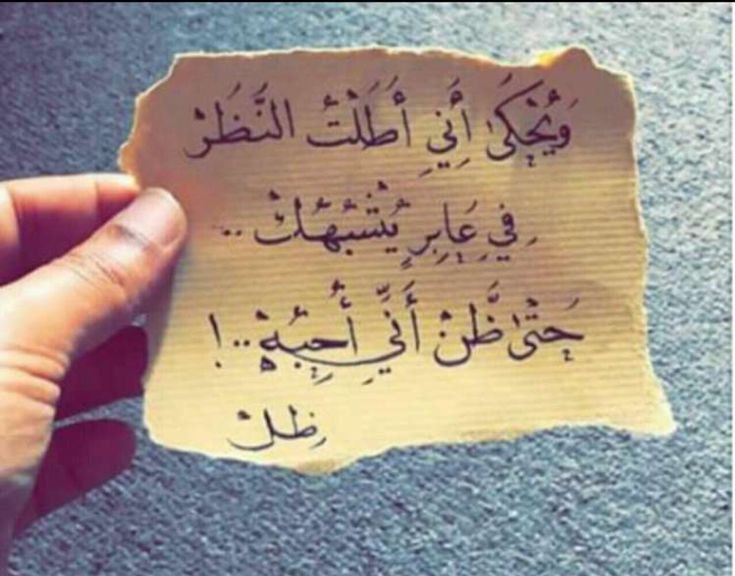 وَيُحْكَىٰ أَنِّي أَطَلْتُ النَّظَرْ
فِي عَابِرٍ يُشْبِهُكْ ..
حَتْىٰ ظَّنْ أَنَّي أُحِبُهْ..!
ظِلْ